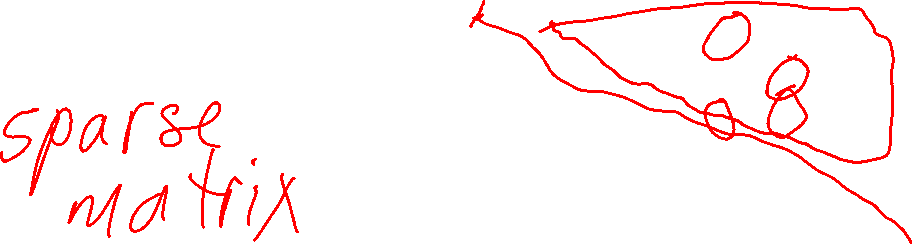 sparse
matrix